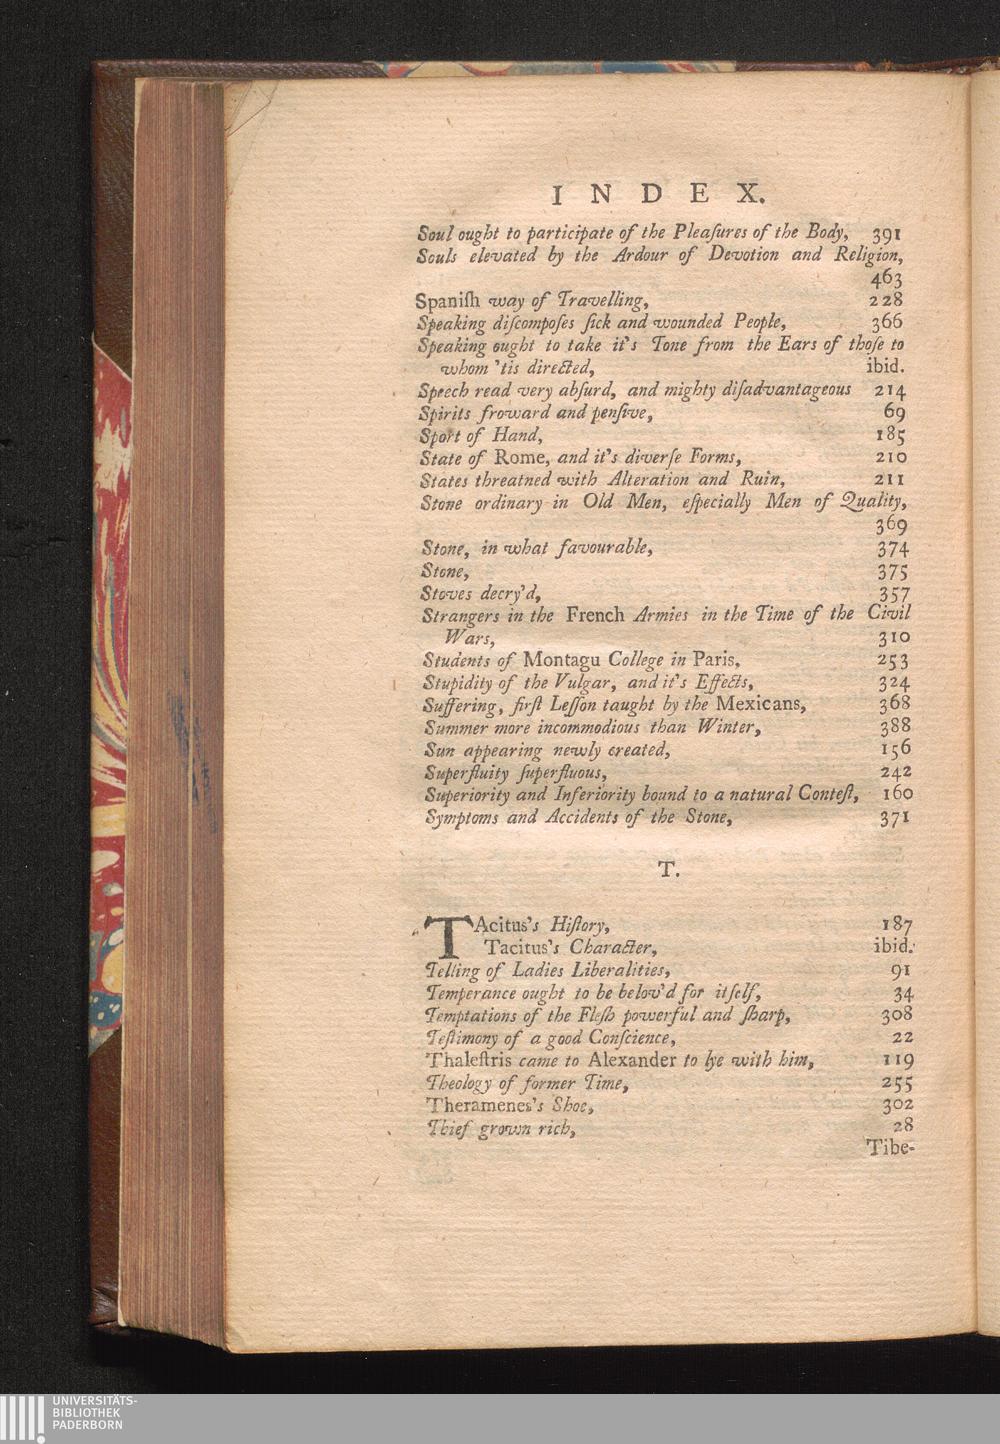 INDEX.
Soul ought to participate of the Pleaſures of the Body, 391
Souls elevated by the Ardour of Devotion and Religion,
463
Spaniſh way of Travelling, 228
Speaking diſcompoſes ſick and wounded People, 366
Speaking ought to take it's Tone from the Ears of thoſe to
whom 'tis directed, ibid.
Speech read very abſurd, and mighty diſadvantageous 214
Spirits froward and penſive, 69
Sport of Hand, 185
State of Rome, and it's diverſe Forms, 210
States threatned with Alteration and Ruin, 211
Stone ordinary in Old Men, eſpecially Men of Quality,
369
Stone, in what favourable, 374
Stone, 375
Stoves decry'd, 357
Strangers in the French Armies in the Time of the Civil
Wars, 310
Students of Montagu College in Paris, 253
Stupidity of the Vulgar, and it's Effects, 324
Suffering, firſt Leſſon taught by the Mexicans, 368
Summer more incommodious than Winter, 388
Sun appearing newly created, 156
Superfluity ſuperfluous, 242
Superiority and Inferiority bound to a natural Conteſt, 160
Symptoms and Accidents of the Stone, 371
T.
TAcitus's Hiſtory, 187
Tacitus's Character, ibid.
Telling of Ladies Liberalities, 91
Temperance ought to be belov'd for itſelf, 34
Temptations of the Fleſh powerful and ſharp, 308
Teſtimony of a good Conſcience, 22
Thaleſtris came to Alexander to lye with him, 119
Theology of former Time, 255
Theramenes's Shoe, 302
Thief grown rich, 28
Tibe-
UNIVERSITÄTS-
BIBLIOTHEK
PADERBORN